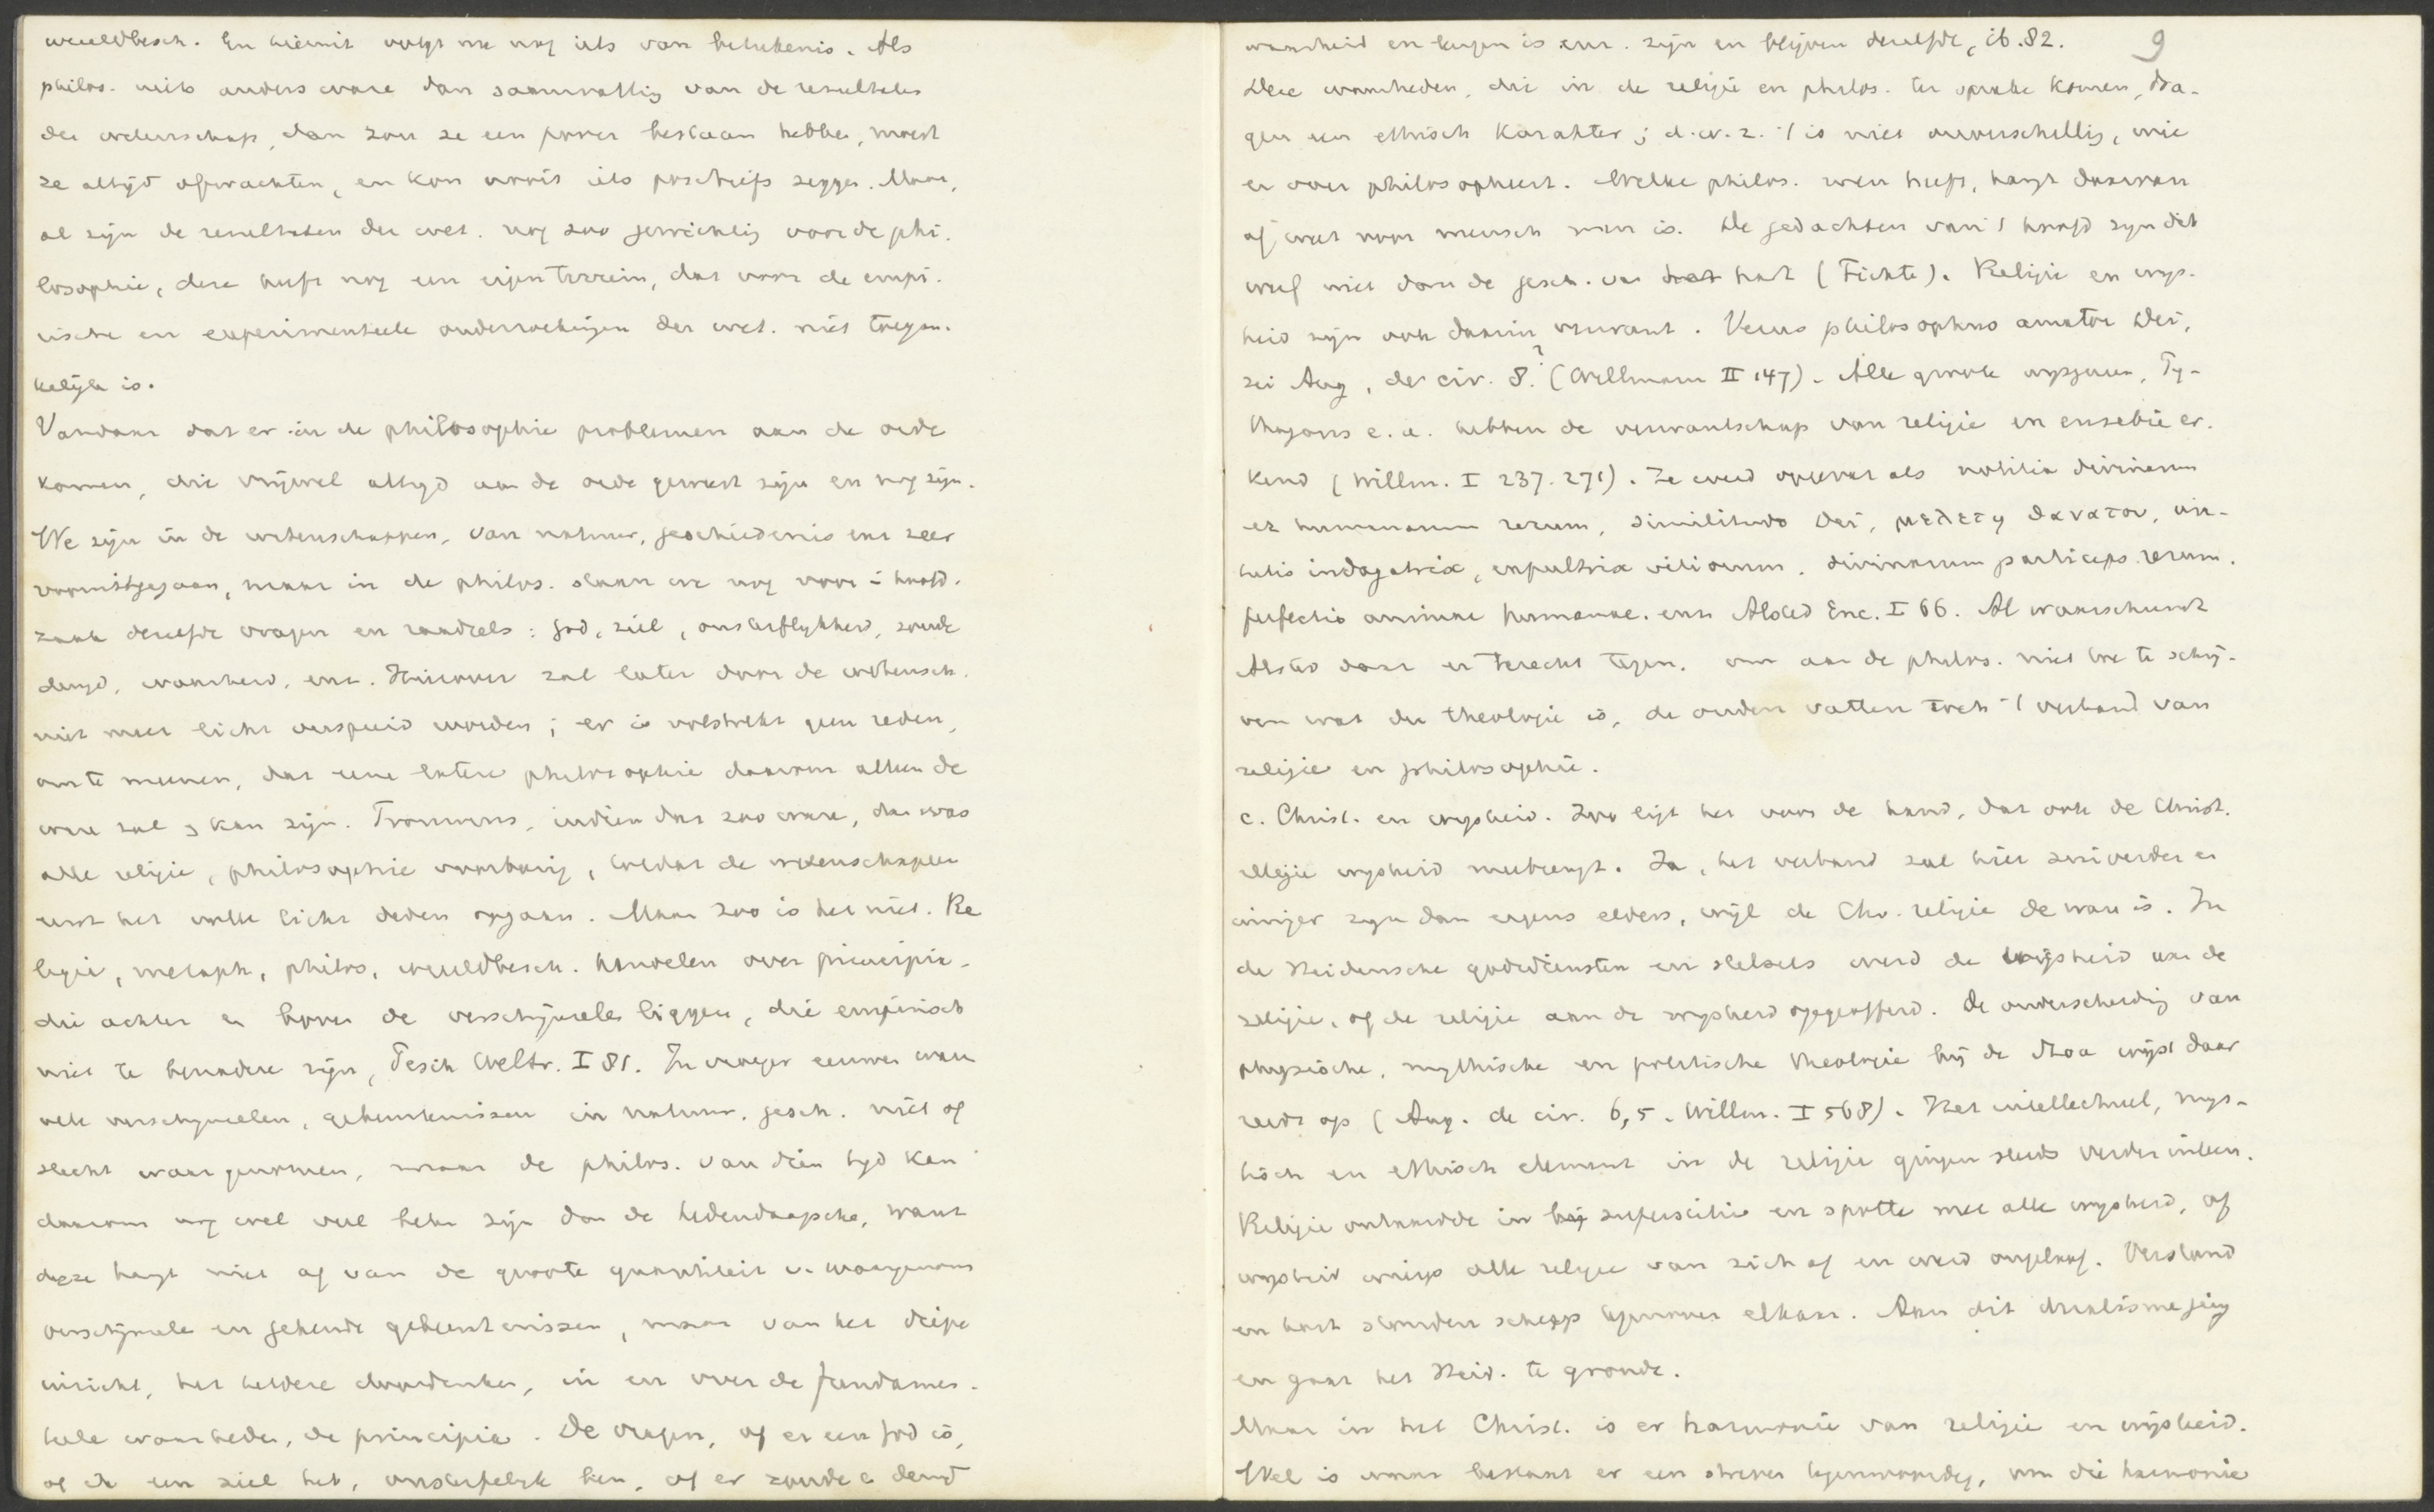 wereldbesch. En hieruit volgt me nog iets van beteekenis. Als
philos. niets anders ware dan saamvatting van de resultaten
der wetenschap, dan zou ze een poover bestaan hebben, moest
ze altijd afwachten, en kon nooit iets positiefs zeggen. Maar,
al zijn de resultaten der wet. nog zoo gewichtig voor de phi-
losophie, deze heeft nog een eigen terrein, dat voor de empi-
rische en experimenteele onderzoekingen der wet. niet toegan-
kelijk is.
Vandaar dat er in de philosophie problemen aan de orde
komen, die vrijwel altijd aan de orde geweest zijn en nog zijn.
We zijn in de wetenschappen, van natuur, geschiedenis enz zeer
vooruitgegaan, maar in de philos. staan we nog voor in hoofd-
zaak dezelfde vragen en raadsels: God, ziel, onsterflijkheid, zonde
deugd, waarheid, enz. Hierover zal later door de wetensch.
niet meer licht verspreid worden; er is volstrekt geen reden,
om te meenen, dat eene latere philosophie daarom alleen de
ware zal & kan zijn. Trouwens, indien dat zoo ware, dan was
alle religie, philosophie voorbarig, totdat de wetenschappen
eerst het volle licht deden opgaan. Maar zoo is het niet. Re
ligie, metaph, philos, wereldbesch. handelen over principia,
die achter en boven de verschijnselen liggen, die empirisch
niet te benaderen zijn, Pesch Weltr. I 81. In vroeger eeuwen waren
vele verschijnselen, gebeurtenissen in natuur, gesch. niet of
slecht waargenomen, maar de philos. van dien tijd kan
daarom nog wel veel beter zijn dan de hedendaagsche, want
deze hangt niet af van de groote quantiteit v. waargenomen
verschijnselen en gekende gebeurtenissen, maar van het diepe
inzicht, het heldere doordenken, in en over de fundamen-
teele waarheden, de principia. De vragen, of er een God is,
of de een ziel heb, onsterfelijk ben, of er zonde en deugd
9
waarheid en leugen is enz. zijn en blijven dezelfde, ib. 82.
Deze waarheden, die in de religie en philos. ter sprake komen, dra-
gen een ethisch karakter; d.w.z. 't is niet onverschillig, wie
er over philosopheert. Welke philos. men heeft, hangt daarvan
af, wat voor mensch men is. De gedachten van 't hoofd zijn dik
wijls niet dan de gesch. van het hart (Fichte). Religie en wijs-
heid zijn ook daarin verwant. Verus philosophus amator Dei,
zei Aug, de civ. 8.? (Willmann II 147). Alle groote wijsgeeren, Py-
thagoras e.a. hebben de verwantschap van religie en eusebie er-
kend (Willm. I 237. 271). Ze werd opgevat als notitia divinarum
et humanarum rerum, similitudo Dei, μελετη θανατου, vir-
tutis indagatrix, expultrix vitiorum, divinarum particeps rerum,
perfectio animae humanae. enz Alsted Enc. I 66. Al waarschuwt
Alsted daar er terecht tegen, om aan de philos. niet toe te schrij-
ven wat der theologie is, de ouden vatten toch 't verband van
religie en philosophie.
c. Christ. en wijsheid. Zoo ligt het voor de hand, dat ook de Christ.
religie wijsheid meebrengt. Ja, het verband zal hier zuiverder en
inniger zijn dan ergens elders, wijl de Chr. religie de ware is. In
de Heidensche godsdiensten en stelsels werd de wijsheid aan de
religie, of de religie aan de wijsheid opgeofferd. De onderscheiding van
physische, mythische en politische theologie bij de Stoa wijst daar
reeds op (Aug. de civ. 6,5. Willm. I 568). Het intellectueel, mys-
tisch en ethisch element in de religie gingen steeds verder uiteen.
Religie ontaardde in bij superstitie en spotte met alle wijsheid, of
wijsheid wierp alle religie van zich af en werd ongeloof. Verstand
en hart stonden scherp tegenover elkaar. Aan dit dualisme ging
en gaat het Heid. te gronde.
Maar in het Christ. is er harmonie van religie en wijsheid.
Wel is waar bestaat er een streven tegenwoordig, om die harmonie